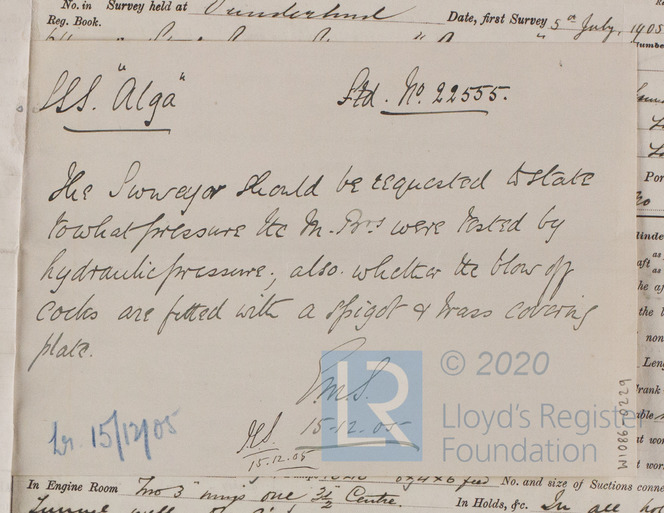 No. in Survey held at Sunderland Date, first Survey 5th July, 1905
Reg. Book.
SSS. "Alga" Sld. No. 22555.
The Surveyor should be requested to state
to what pressure the M. Brs were tested by
hydraulic pressure; also whether the blow off
cocks are fitted with a spigot & brass covering
plate.
15-12-05
15.12.05
Lr. 15/12/05
LR
© 2020
Lloyd's Register
Foundation
W1086-0229
In Engine Room Two 3" rings one 3½" Centre. No. and size of Suctions conne
In Holds, &c. In all ho